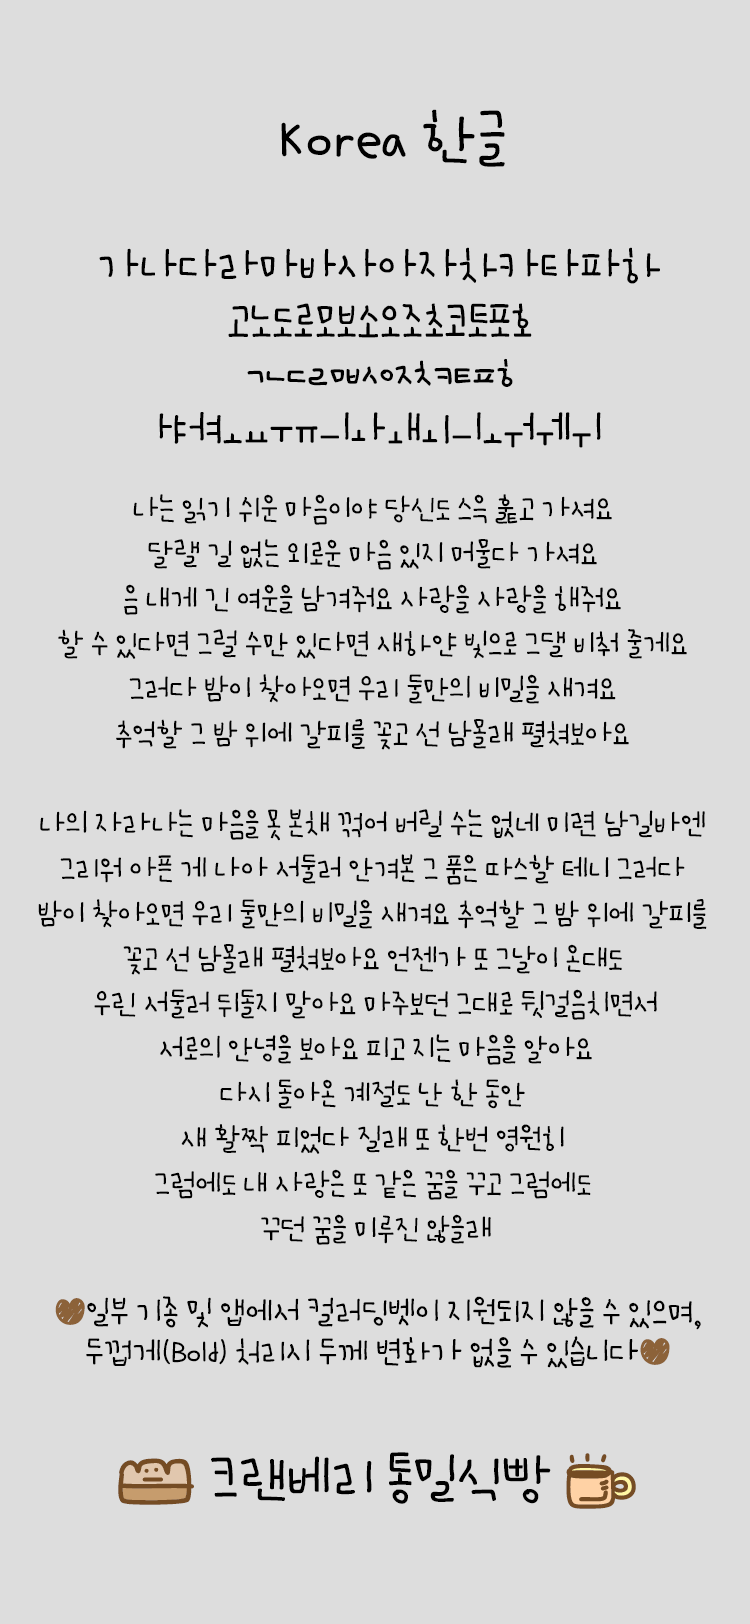 Korea 한글
가나다라마바사아자차카타파하
고노도로모보소오조초코토포호
ㄱㄴㄷㄹㅁㅂㅅㅇㅈㅊㅋㅌㅍㅎ
ㅑㅕㅕㅗㅛㅜㅠㅡㅣㅘㅙㅚㅢㅗㅝㅞㅟ
나는 읽기 쉬운 마음이야 당신도 스윽 훑고 가셔요
달랠 길 없는 외로운 마음 있지 머물다 가셔요
음 내게 긴 여운을 남겨줘요 사랑을 사랑을 해줘요
할 수 있다면 그럴 수만 있다면 새하얀 빛으로 그댈 비춰 줄게요
그러다 밤이 찾아오면 우리 둘만의 비밀을 새겨요
추억할 그 밤 위에 갈피를 꽂고 선 남몰래 펼쳐보아요
나의 자라나는 마음을 못 본채 꺾어 버릴 수는 없네 미련 남길바엔
그리워 아픈 게 나아 서둘러 안겨본 그 품은 따스할 테니 그러다
밤이 찾아오면 우리 둘만의 비밀을 새겨요 추억할 그 밤 위에 갈피를
꽂고 선 남몰래 펼쳐보아요 언젠가 또 그날이 온대도
우린 서둘러 뒤돌지 말아요 마주보던 그대로 뒷걸음치면서
서로의 안녕을 보아요 피고 지는 마음을 알아요
다시 돌아온 계절도 난 한 동안
새 활짝 피었다 질래 또 한번 영원히
그럼에도 내 사랑은 또 같은 꿈을 꾸고 그럼에도
꾸던 꿈을 미루진 않을래
일부 기종 및 앱에서 컬러딩벳이 지원되지 않을 수 있으며,
두껍게(Bold) 처리시 두께 변화가 없을 수 있습니다
크랜베리 통밀식빵